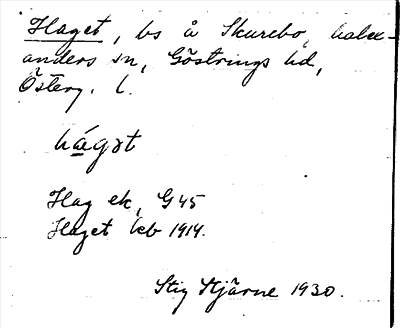 Haget, bs å Skurebo, halex-
anders sn, Göstrings hd,
Österg. l.
hágət
Hag ek, G 45
Haget kb 1914.
Stig Stjärne 1930.